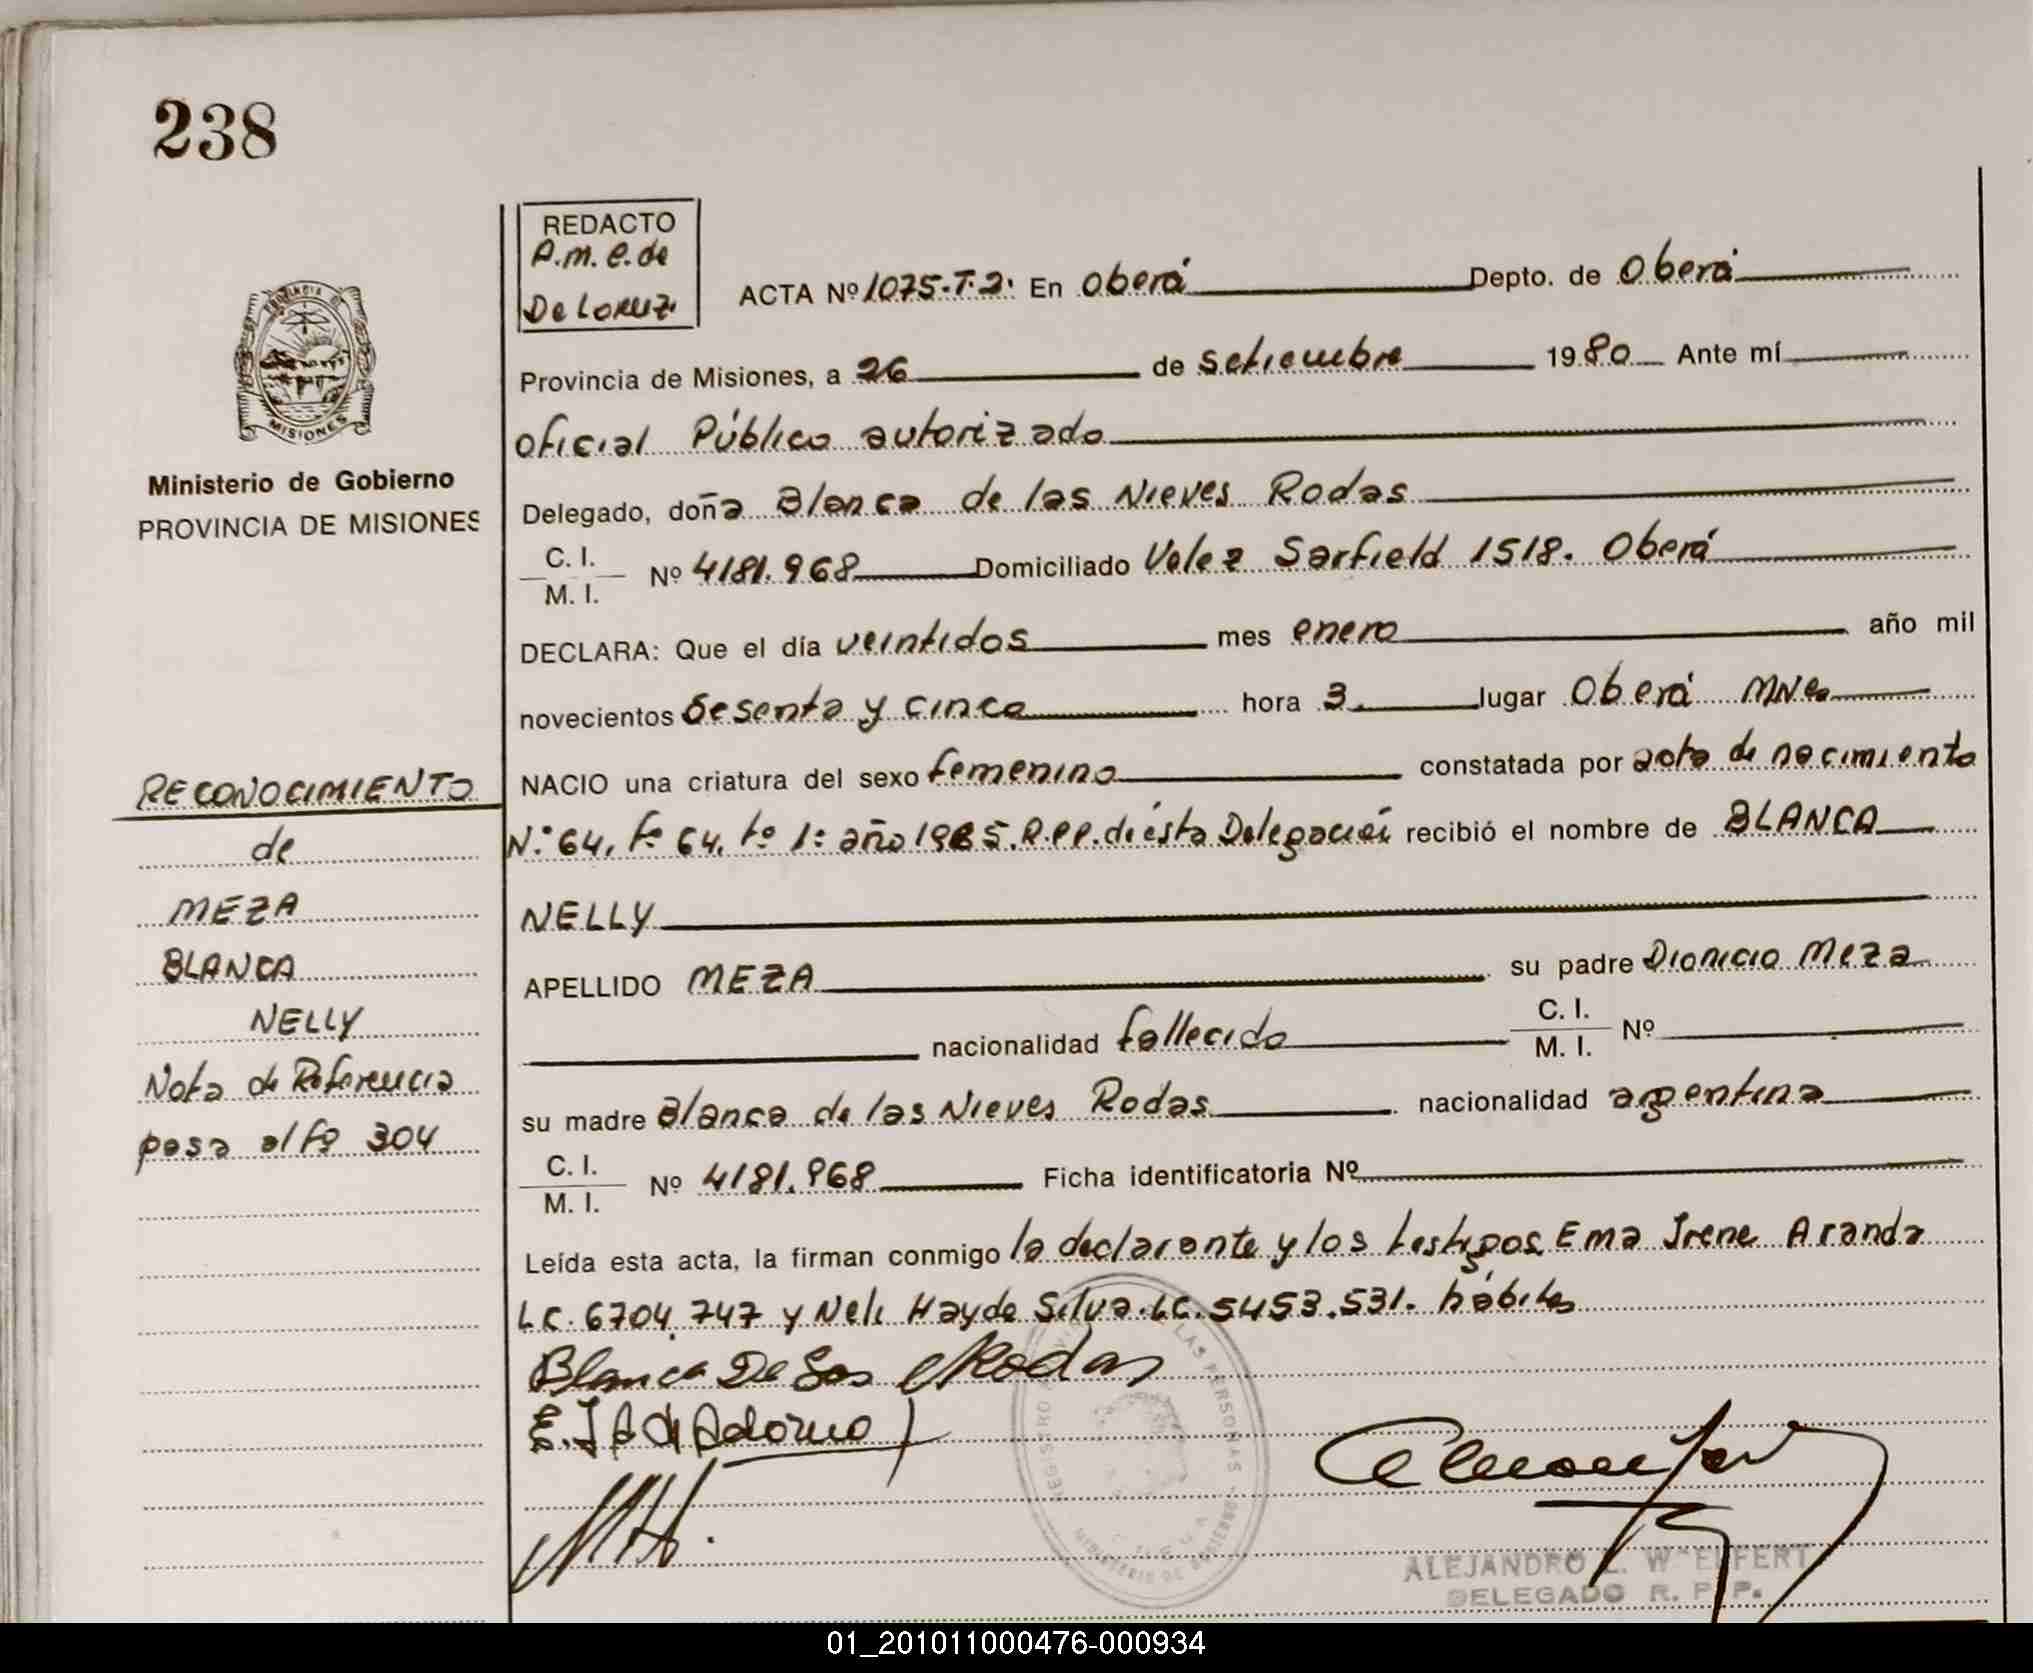 238
REDACTO
P.m.e.de
De Loruz.
ACTA Nº 1075-T.2. En Oberá Depto. de Oberá
PROVINCIA DE
MISIONES
Provincia de Misiones, a 26 de setiembre 1980 Ante mí
Oficial Público autorizado
Ministerio de Gobierno
PROVINCIA DE MISIONES
Delegado, doña Blanca de las Nieves Rodas
C. I.
M. I. Nº 4181.968 Domiciliado Velez Sarfield 1518. Oberá
DECLARA: Que el día veintidos mes enero año mil
novecientos sesenta y cinco hora 3. lugar Oberá Mnes
NACIO una criatura del sexo femenino constatada por acta de nacimiento
Nº 64, fº 64, tº 1º año 1965. R.PP. de ésta Delegación recibió el nombre de BLANCA
NELLY
APELLIDO MEZA su padre Dionicio Meza
nacionalidad fallecido C. I.
M. I. Nº
su madre Blanca de las Nieves Rodas nacionalidad argentina
C. I.
M. I. Nº 4181.968 Ficha identificatoria Nº
Leída esta acta, la firman conmigo la declarante y los testigos Ema Irene Aranda
LC. 6704.747 y Neli Hayde Silva. LC. 5453.531. hábiles
Blanca De Las N Rodas
E. I A de Adorno
RECONOCIMIENTO
de
MEZA
BLANCA
NELLY
Nota de Referencia
pasa al fº 304
REGISTRO LAS PERSONAS
MINISTERIO DE GOBIERNO
ALEJANDRO L. WELFERT
DELEGADO R. P. P.
01_201011000476-000934